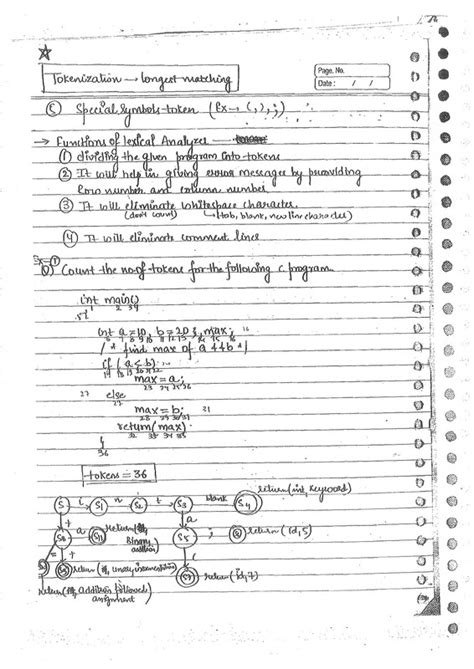 Tokenization → longest matching
Page. No.
Date : / /
⑤ Special symbols-token (Ex → (,),;)
→ Functions of lexical Analyzer →
① dividing the given program into tokens
② It will help in giving error messages by providing
row number and column number
③ It will eliminate whitespace character.
(don't count) ↳ tab, blank, new line character)
④ It will eliminate comment lines
Q) Count the no of tokens for the following c program.
int main()
1 2 3 4
5 {
int a=10, b=20, max;
/* find max of a & b */
if (a<b)
max = a;
23 24 25 26
27 else
max = b;
28 29 30 31
return(max)
32 33 34 35
}
36
tokens = 36
S i S1 n S2 t S3 blank S4 return(int, keyword)
a
S5 ; return(id,5)
return( Binary addition)
return( unary, incrementation)
return(id,7)
return( addition followed
assignment)